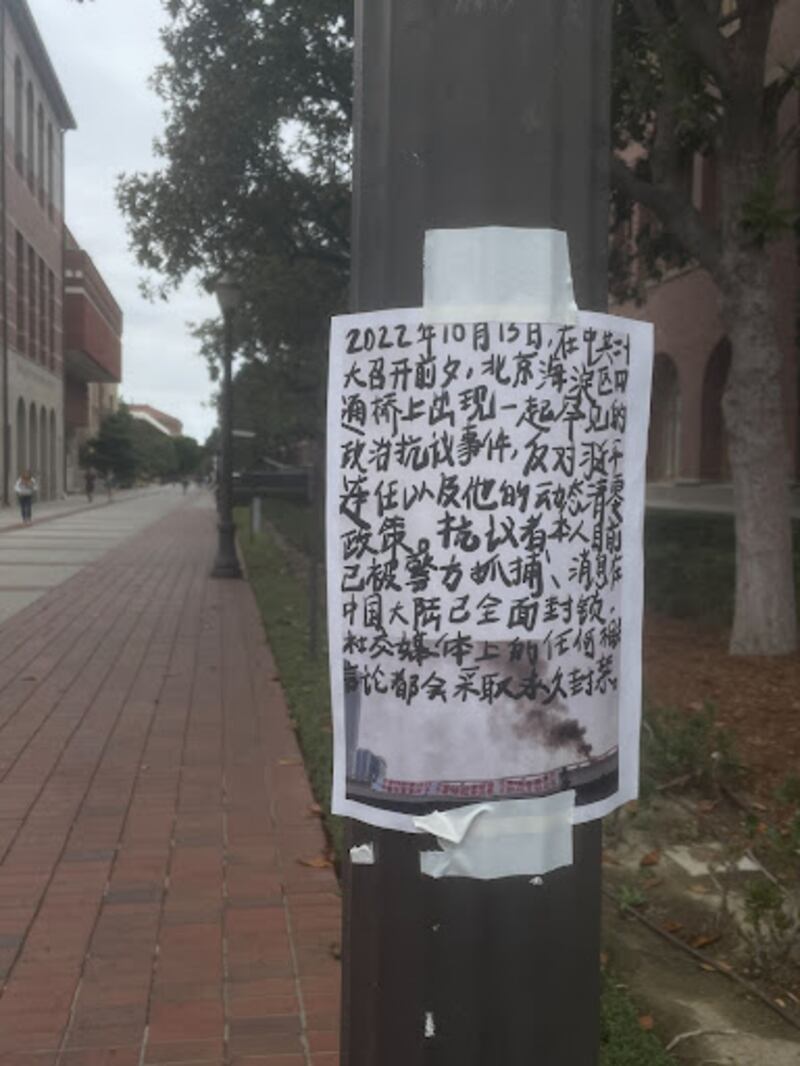 2022年10月13日,在中共二十
大召开前夕,北京海淀区四
通桥上出现一起罕见的
政治抗议事件,反对习近平
连任以及他的动态清零
政策。抗议者本人目前
已被警方抓捕、消息在
中国大陆已全面封锁,
社交媒体上的任何相
言论都会采取永久封禁。